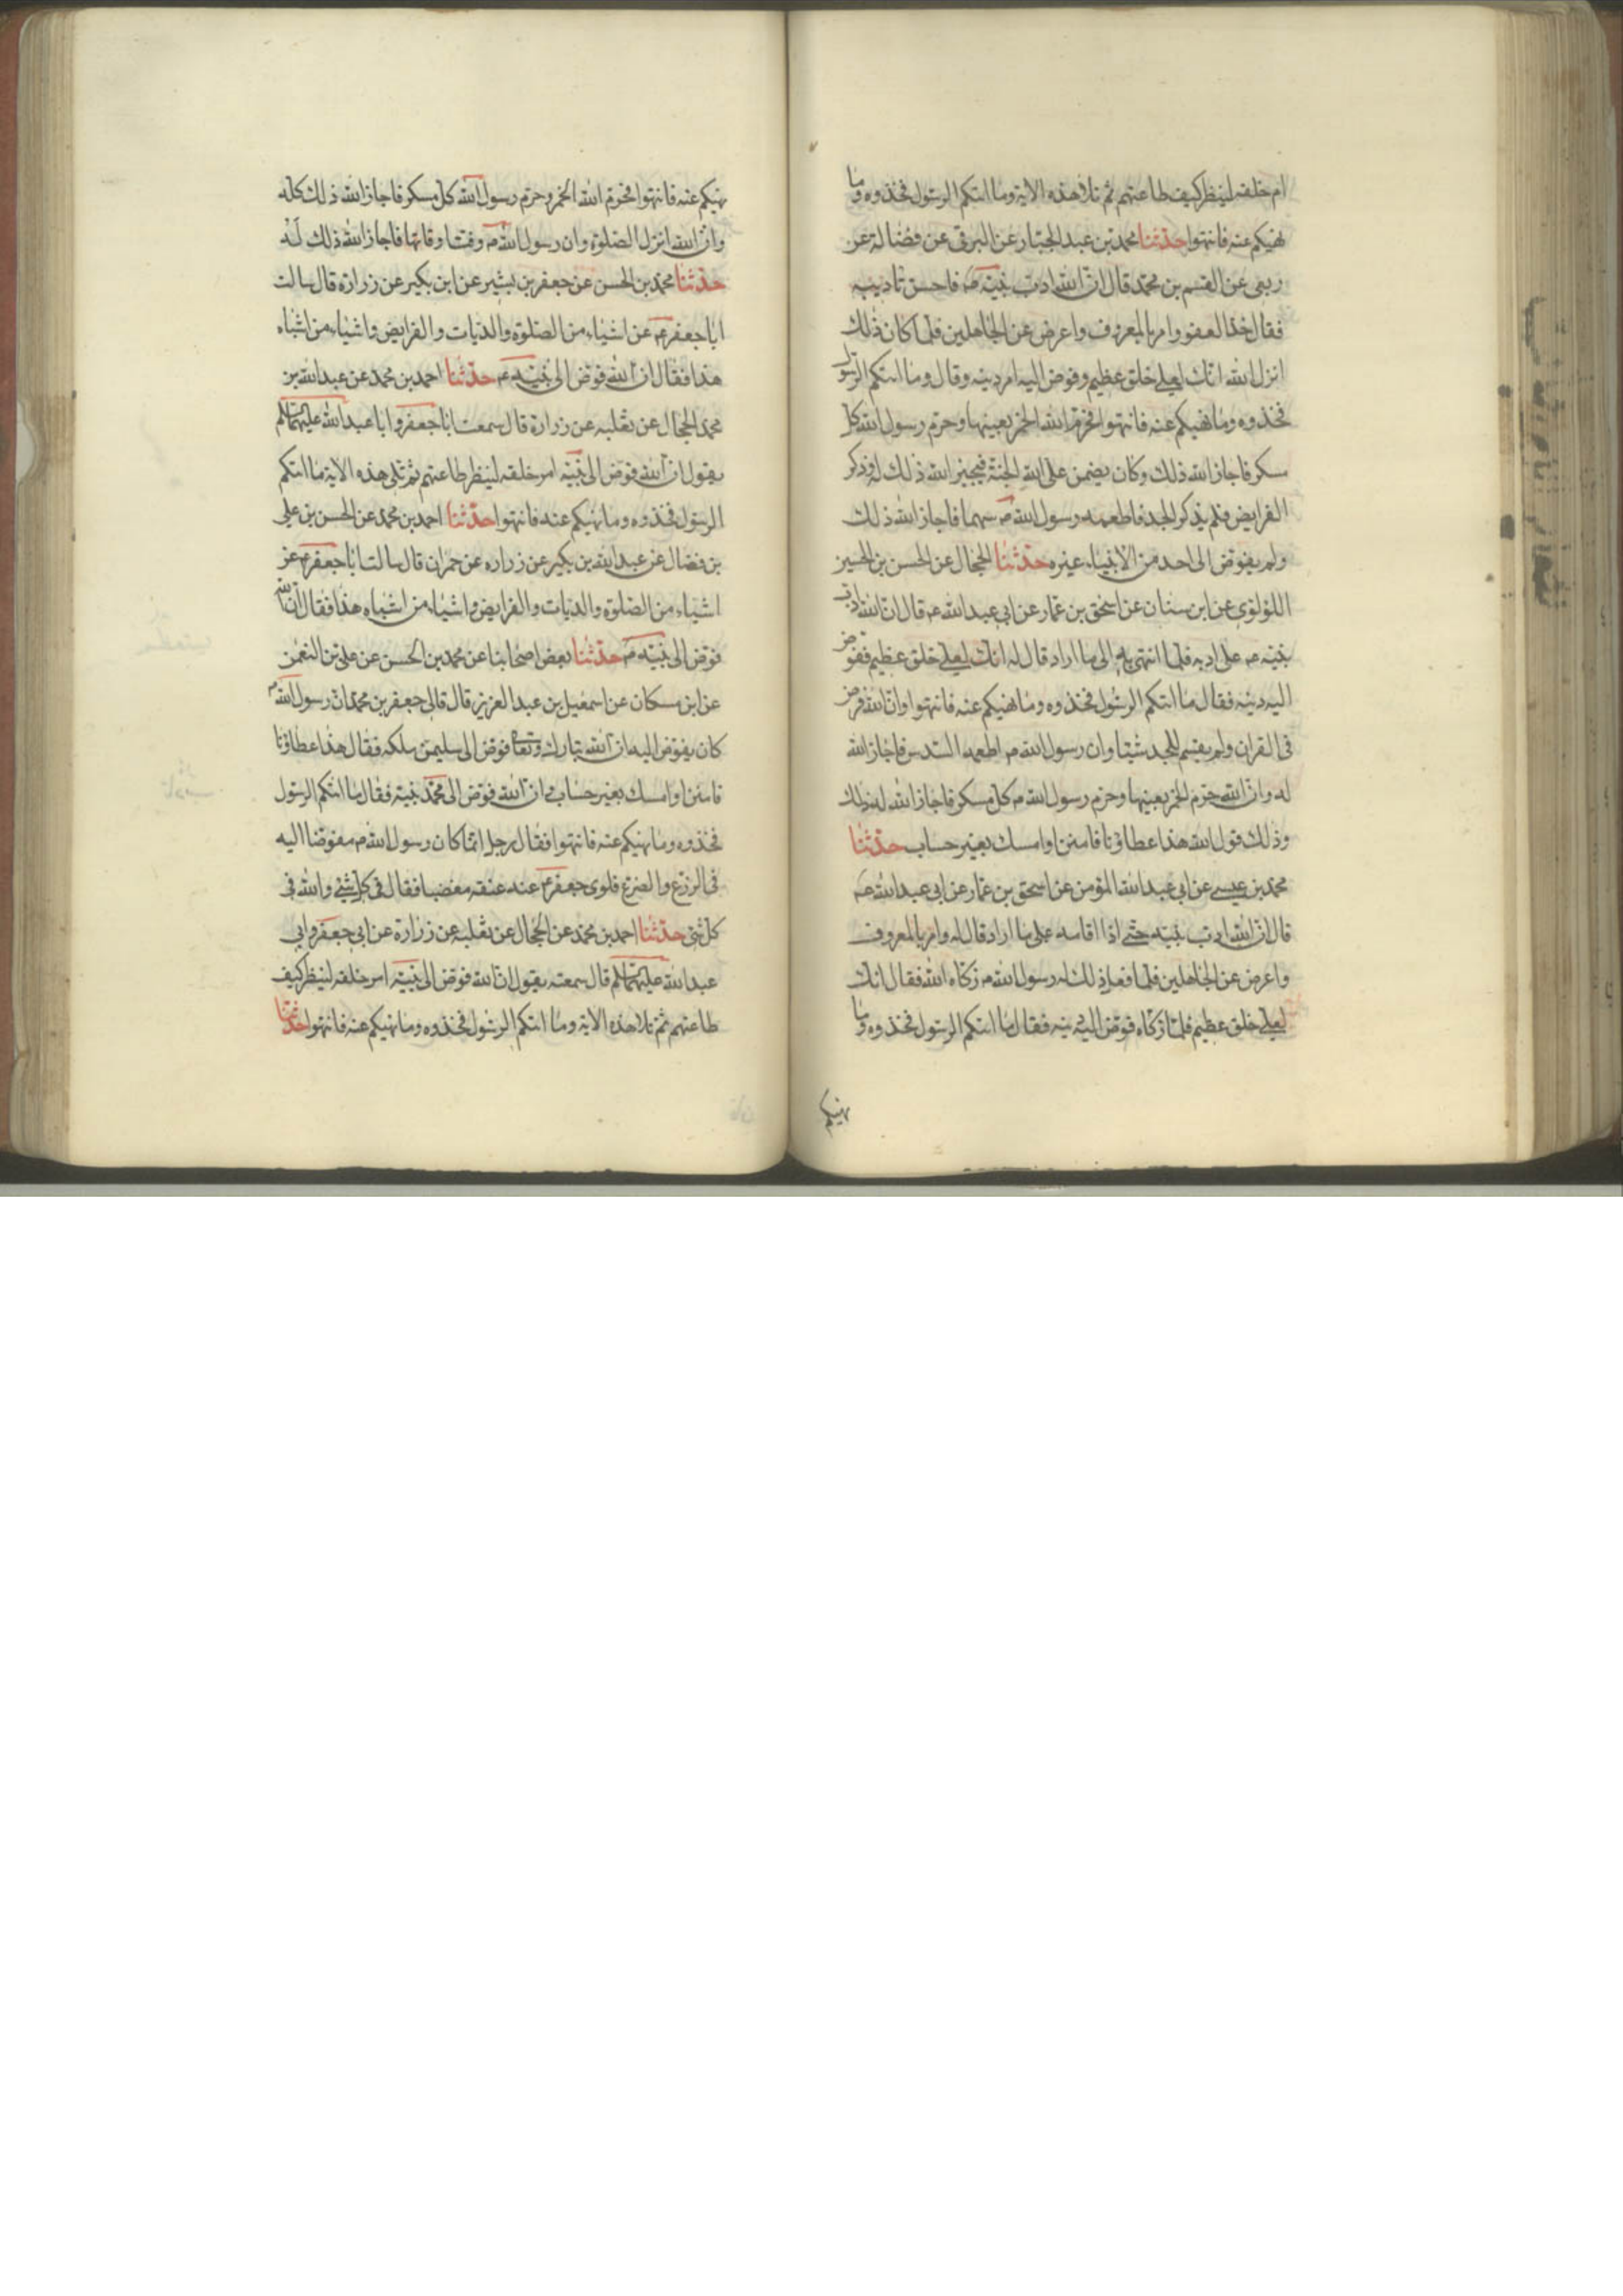 ام خلقه لينظر كيف طاعتهم ثم تلا هذه الاية وما اتيكم الرسول فخذوه وما
نهيكم عنه فانتهوا حدثنا محمد بن عبد الجبار عن البرقى عن فضالة عن
ربعى عن القسم بن محمد قال ان الله ادب نبيه ص فاحسن تاديبه
فقال خذ العفو وامر بالمعروف واعرض عن الجاهلين فلما كان ذلك
انزل الله انك لعلى خلق عظيم وفوض اليه امر دينه وقال وما اتيكم الرسول
فخذوه وما نهيكم عنه فانتهوا فحرم الله الخمر بعينها وحرم رسول الله كل
مسكر فاجاز الله ذلك وكان يضمن على الله الجنة فيجيز الله ذلك له وذكر
الفرايض فلم يذكر الجد فاطعمه رسول الله ص سهما فاجاز الله ذلك
ولم يفوض الى احد من الانبياء غيره حدثنا الحجال عن الحسن بن الحسين
اللؤلؤى عن ابن سنان عن اسحق بن عمار عن ابى عبد الله ع قال ان الله ادب
نبيه ص على ادبه فلما انتهى به الى ما اراد قال له انك لعلى خلق عظيم ففوض
اليه دينه فقال ما اتيكم الرسول فخذوه وما نهيكم عنه فانتهوا وان الله فرض
فى القران ولم يقسم للجد شيئا وان رسول الله ص اطعمه السدس فاجاز الله
له وان الله حرم الخمر بعينها وحرم رسول الله ص كل مسكر فاجاز الله له ذلك
وذلك قول الله هذا عطاؤنا فامنن او امسك بغير حساب حدثنا
محمد بن عيسى عن ابى عبد الله المؤمن عن اسحق بن عمار عن ابى عبد الله ع
قال ان الله ادب نبيه حتى اذا اقامه على ما اراد قال له وامر بالمعروف
واعرض عن الجاهلين فلما فعل ذلك له رسول الله ص زكاه الله فقال انك
لعلى خلق عظيم فلما زكاه فوض اليه دينه فقال ما اتيكم الرسول فخذوه وما
نهيكم
نهيكم عنه فانتهوا فحرم الله الخمر وحرم رسول الله كل مسكر فاجاز الله ذلك كله
وان الله انزل الصلوة وان رسول الله ص وقت اوقاتها فاجاز الله ذلك له
حدثنا محمد بن الحسن عن جعفر بن بشير عن ابن بكير عن زرارة قال سالت
ابا جعفر ع عن اشياء من الصلوة والديات والفرايض واشياء من اشباه
هذا فقال ان الله فوض الى نبيه ص حدثنا احمد بن محمد عن عبد الله بن
محمد الحجال عن ثعلبه عن زرارة قال سمعت ابا جعفر وابا عبد الله عليهما السلم
يقول ان الله فوض الى نبيه امر خلقه لينظر طاعتهم ثم تلى هذه الاية ما اتيكم
الرسول فخذوه وما نهيكم عنه فانتهوا حدثنا احمد بن محمد عن الحسن بن على
بن فضال عن عبد الله بن بكير عن زراره عن حمران قال سالت ابا جعفر ع عن
اشياء من الصلوة والديات والفرايض واشياء من اشباه هذا فقال ان الله
فوض الى نبيه ص حدثنا بعض اصحابنا عن محمد بن الحسن عن على بن النعمن
عن ابن مسكان عن اسمعيل بن عبد العزيز قال قال لى جعفر بن محمد ان رسول الله ص
كان يفوض اليه ان الله تبارك وتعالى فوض الى سليمن ملكه فقال هذا عطاؤنا
فامنن او امسك بغير حساب وان الله فوض الى محمد نبيه فقال ما اتيكم الرسول
فخذوه وما نهيكم عنه فانتهوا فقال رجل انما كان رسول الله ص مفوضا اليه
فى الزرع والضرع فلوى جعفر ع عنه عنقه مغضبا فقال فى كل شئ والله فى
كل شئ حدثنا احمد بن محمد عن الحجال عن ثعلبه عن زرارة عن ابى جعفر وابى
عبد الله عليهما السلم قال سمعته يقول ان الله فوض الى نبيه امر خلقه لينظر كيف
طاعتهم ثم تلا هذه الاية وما اتيكم الرسول فخذوه وما نهيكم عنه فانتهوا حدثنا